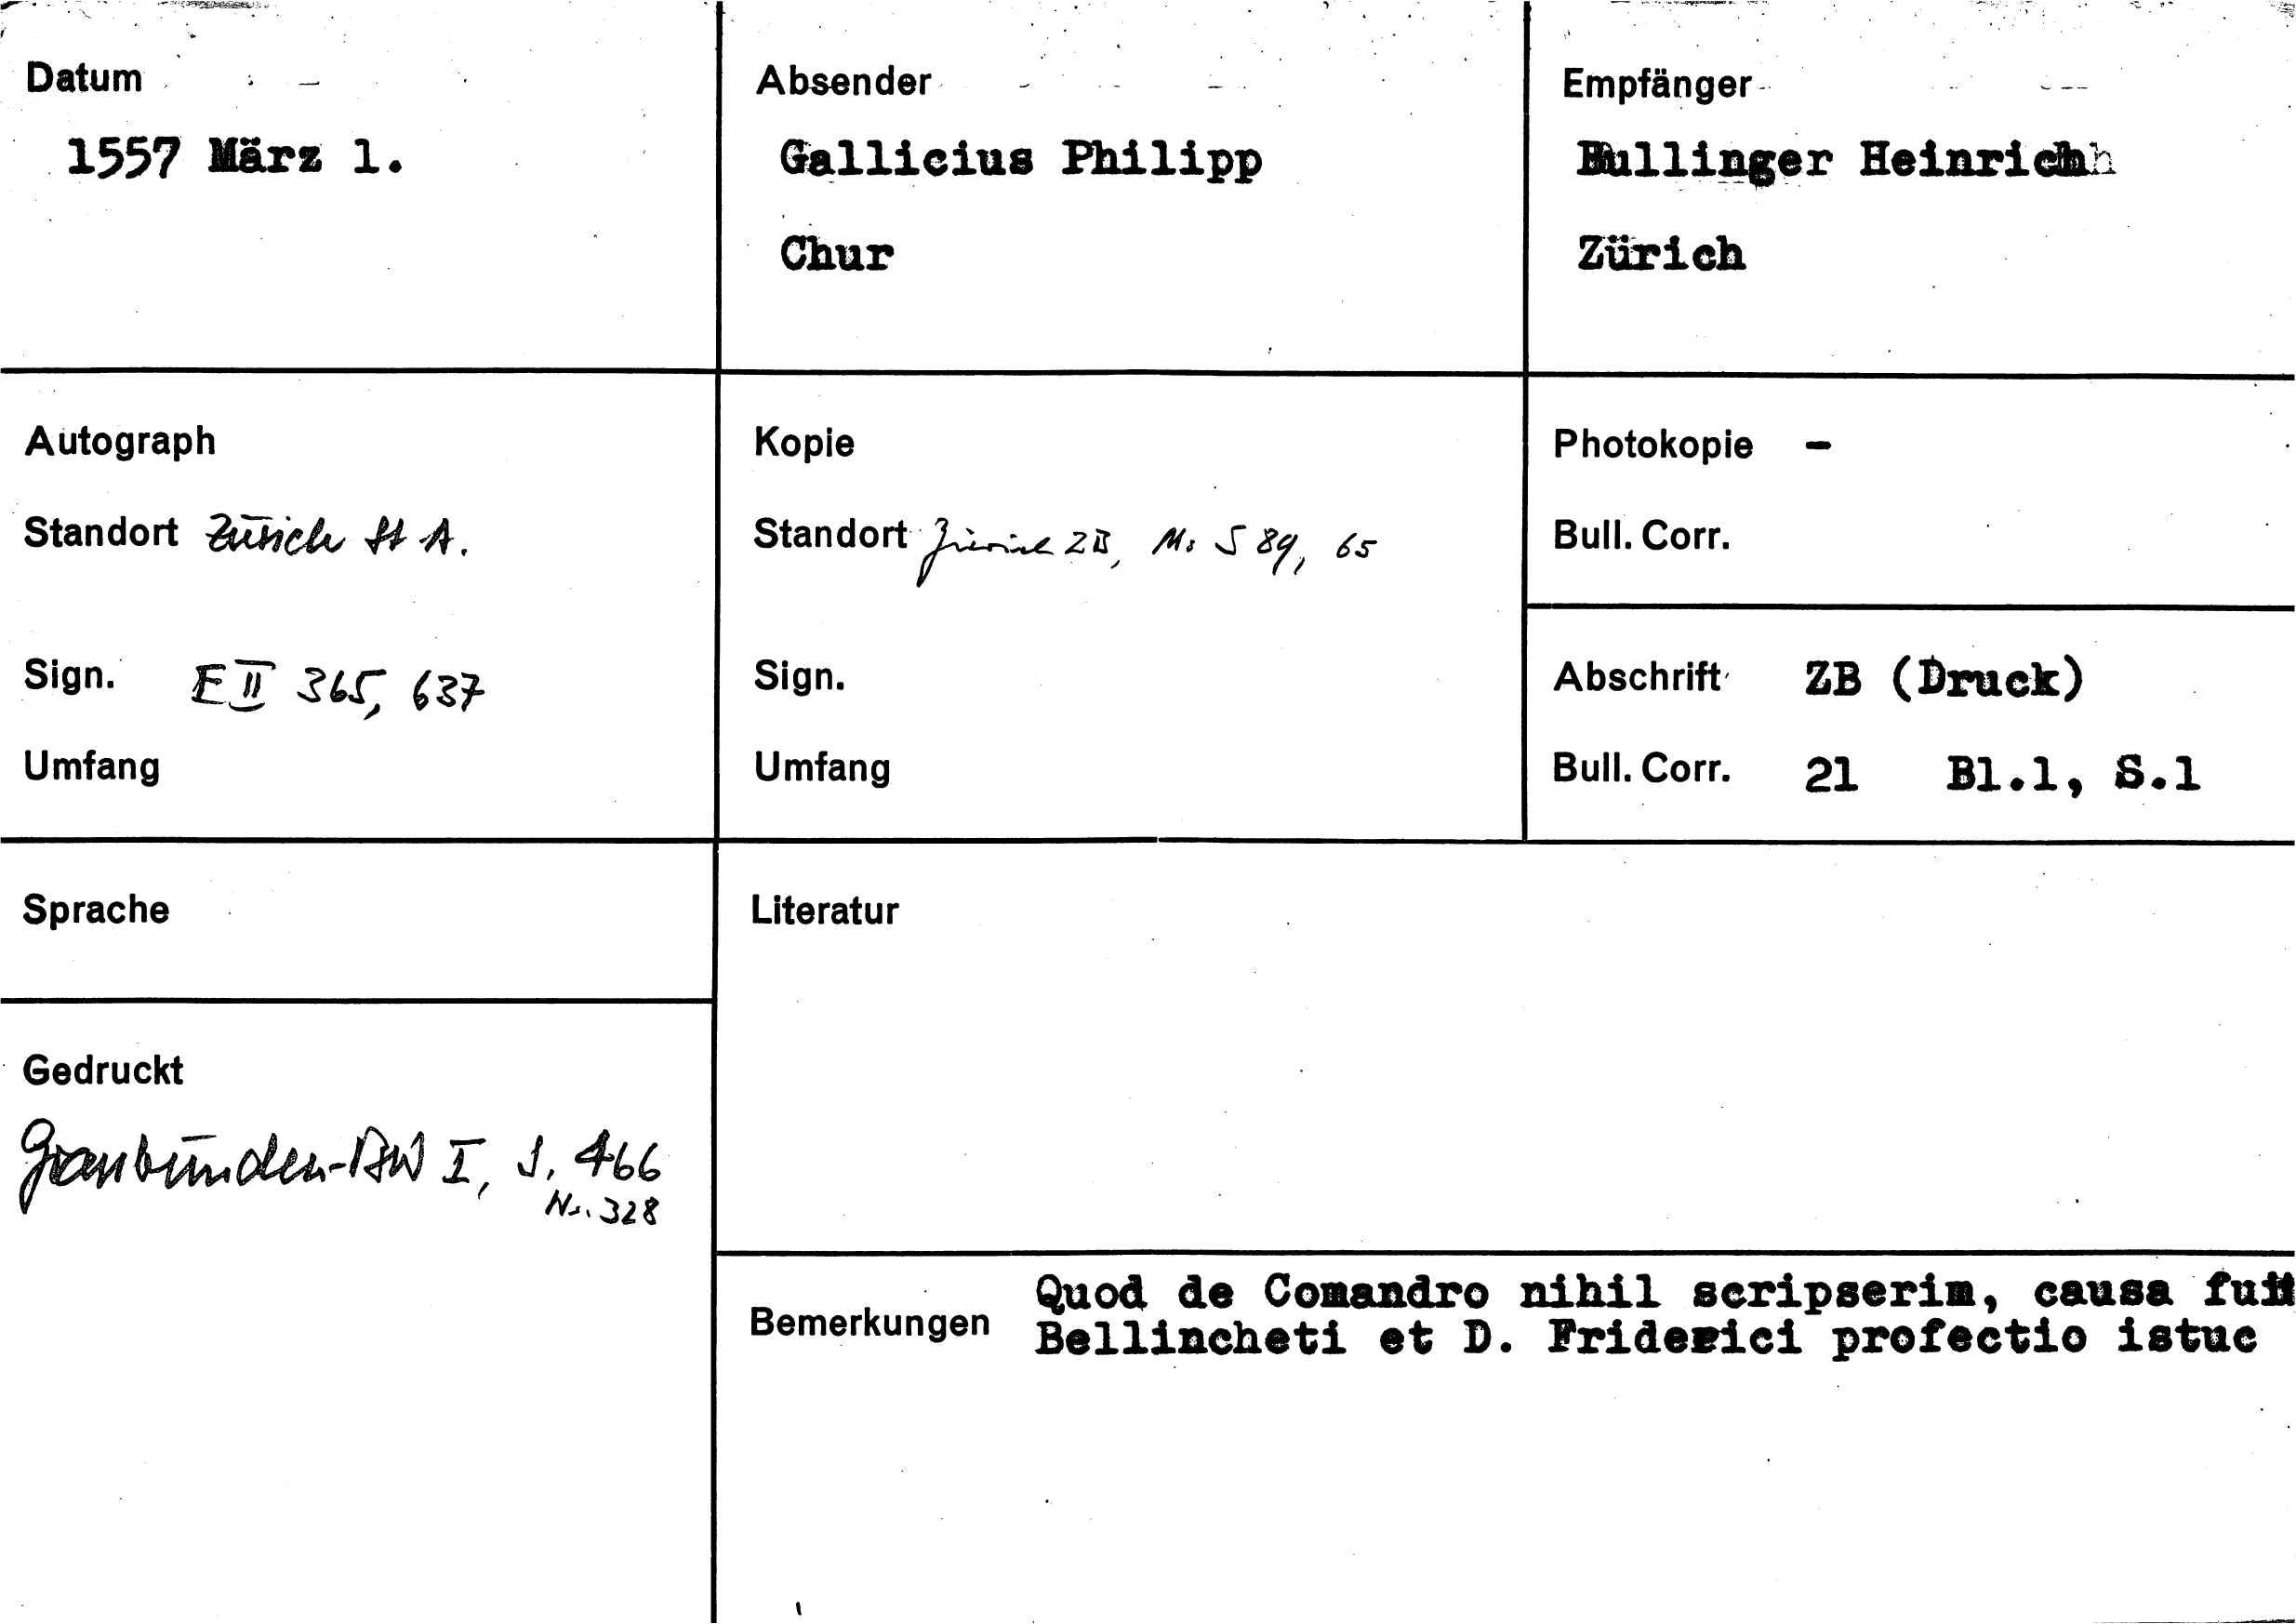 Datum
1557 März 1.
Absender
Gallicius Philipp
Chur
Empfänger
Bullinger Heinrich
Zürich
Autograph
Standort Zürich StA.
Sign. E II 365, 637
Umfang
Kopie
Standort Zürich ZB, Ms S 89, 65
Sign.
Umfang
Photokopie -
Bull. Corr.
Abschrift ZB (Druck)
Bull. Corr. 21 Bl.1, S.1
Sprache
Literatur
Gedruckt
Graubünden-BW I, S. 466
Nr. 328
Bemerkungen
Quod de Comandro nihil scripserim, causa fuit
Bellincheti et D. Friderici profectio istuc